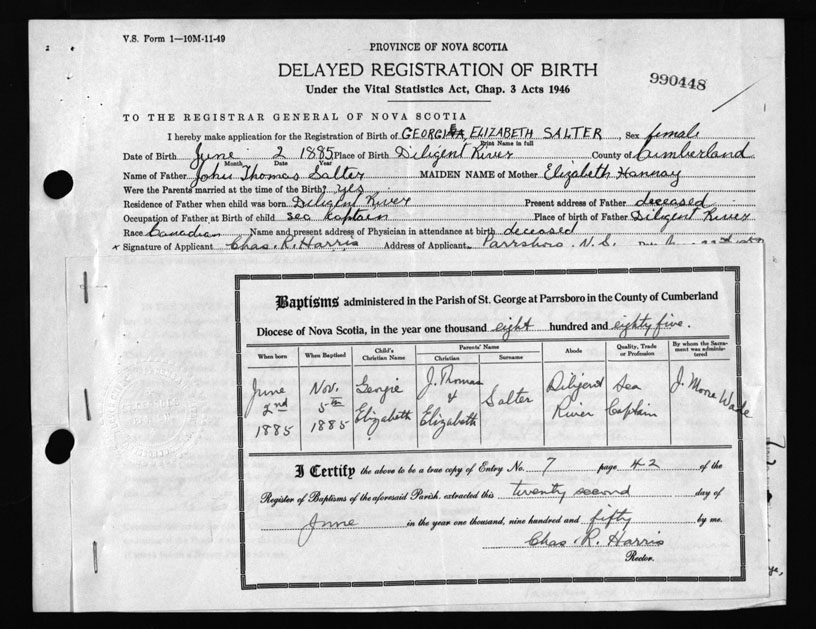 V.S. Form 1—10M-11-49
PROVINCE OF NOVA SCOTIA
DELAYED REGISTRATION OF BIRTH
Under the Vital Statistics Act, Chap. 3 Acts 1946
990448
TO THE REGISTRAR GENERAL OF NOVA SCOTIA
I hereby make application for the Registration of Birth of GEORGIE, ELIZABETH SALTER, Sex female
Print Name in full
Date of Birth June 2 1885 Place of Birth Diligent River County of Cumberland
Month Date Year
Name of Father John Thomas Salter MAIDEN NAME of Mother Elizabeth Hannay
Were the Parents married at the time of the Birth? yes
Residence of Father when child was born Diligent River Present address of Father deceased
Occupation of Father at Birth of child sea Kaptain Place of birth of Father Diligent River
Race Canadian Name and present address of Physician in attendance at birth deceased
x Signature of Applicant Chas. R. Harris Address of Applicant Parrsboro N.S.
Baptisms administered in the Parish of St. George at Parrsboro in the County of Cumberland
Diocese of Nova Scotia, in the year one thousand eight hundred and eighty five.
When born When Baptised Child's Christian Name Parents' Name Christian Surname Abode Quality, Trade or Profession By whom the Sacrament was administered
June 2nd 1885 Nov. 5th 1885 Georgie Elizabeth J. Thomas & Elizabeth Salter Diligent River Sea Captain J. Moore Wade
I Certify the above to be a true copy of Entry No. 7 page 42 of the
Register of Baptisms of the aforesaid Parish. extracted this twenty second day of
June in the year one thousand, nine hundred and fifty by me.
Chas. R. Harris
Rector.